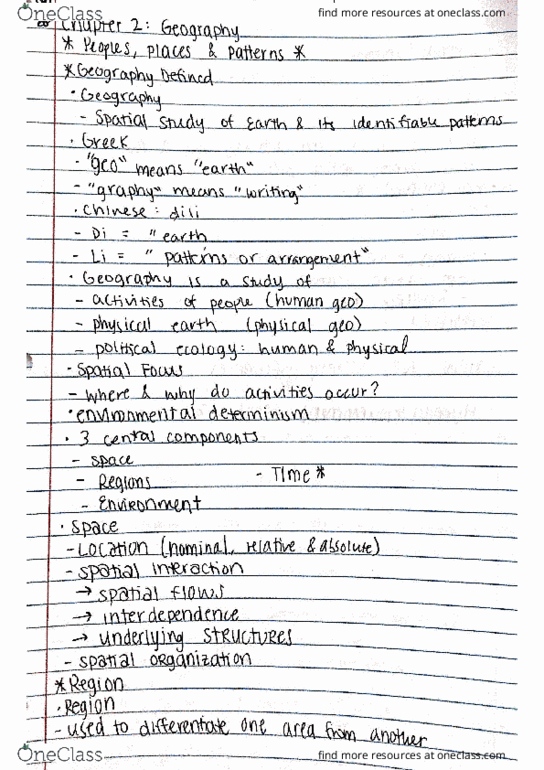 OneClass find more resources at oneclass.com
Chapter 2: Geography
* Peoples, places & patterns *
* Geography Defined
· Geography
- Spatial study of Earth & its identifiable patterns
· Greek
- "geo" means "earth"
- "graphy" means "writing"
· Chinese: dili
- Di = "earth
- Li = "patterns or arrangement"
· Geography is a study of
- activities of people (human geo)
- physical earth (physical geo)
- political ecology: human & physical
· Spatial Focus
- where & why do activities occur?
· environmental determinism
· 3 central components
- space
- Regions - Time *
- Environment
· space
- Location (nominal, relative & absolute)
- spatial interaction
→ spatial flows
→ interdependence
→ underlying structures
- spatial organization
* Region
· Region
- used to differentiate one area from another
OneClass find more resources at oneclass.com